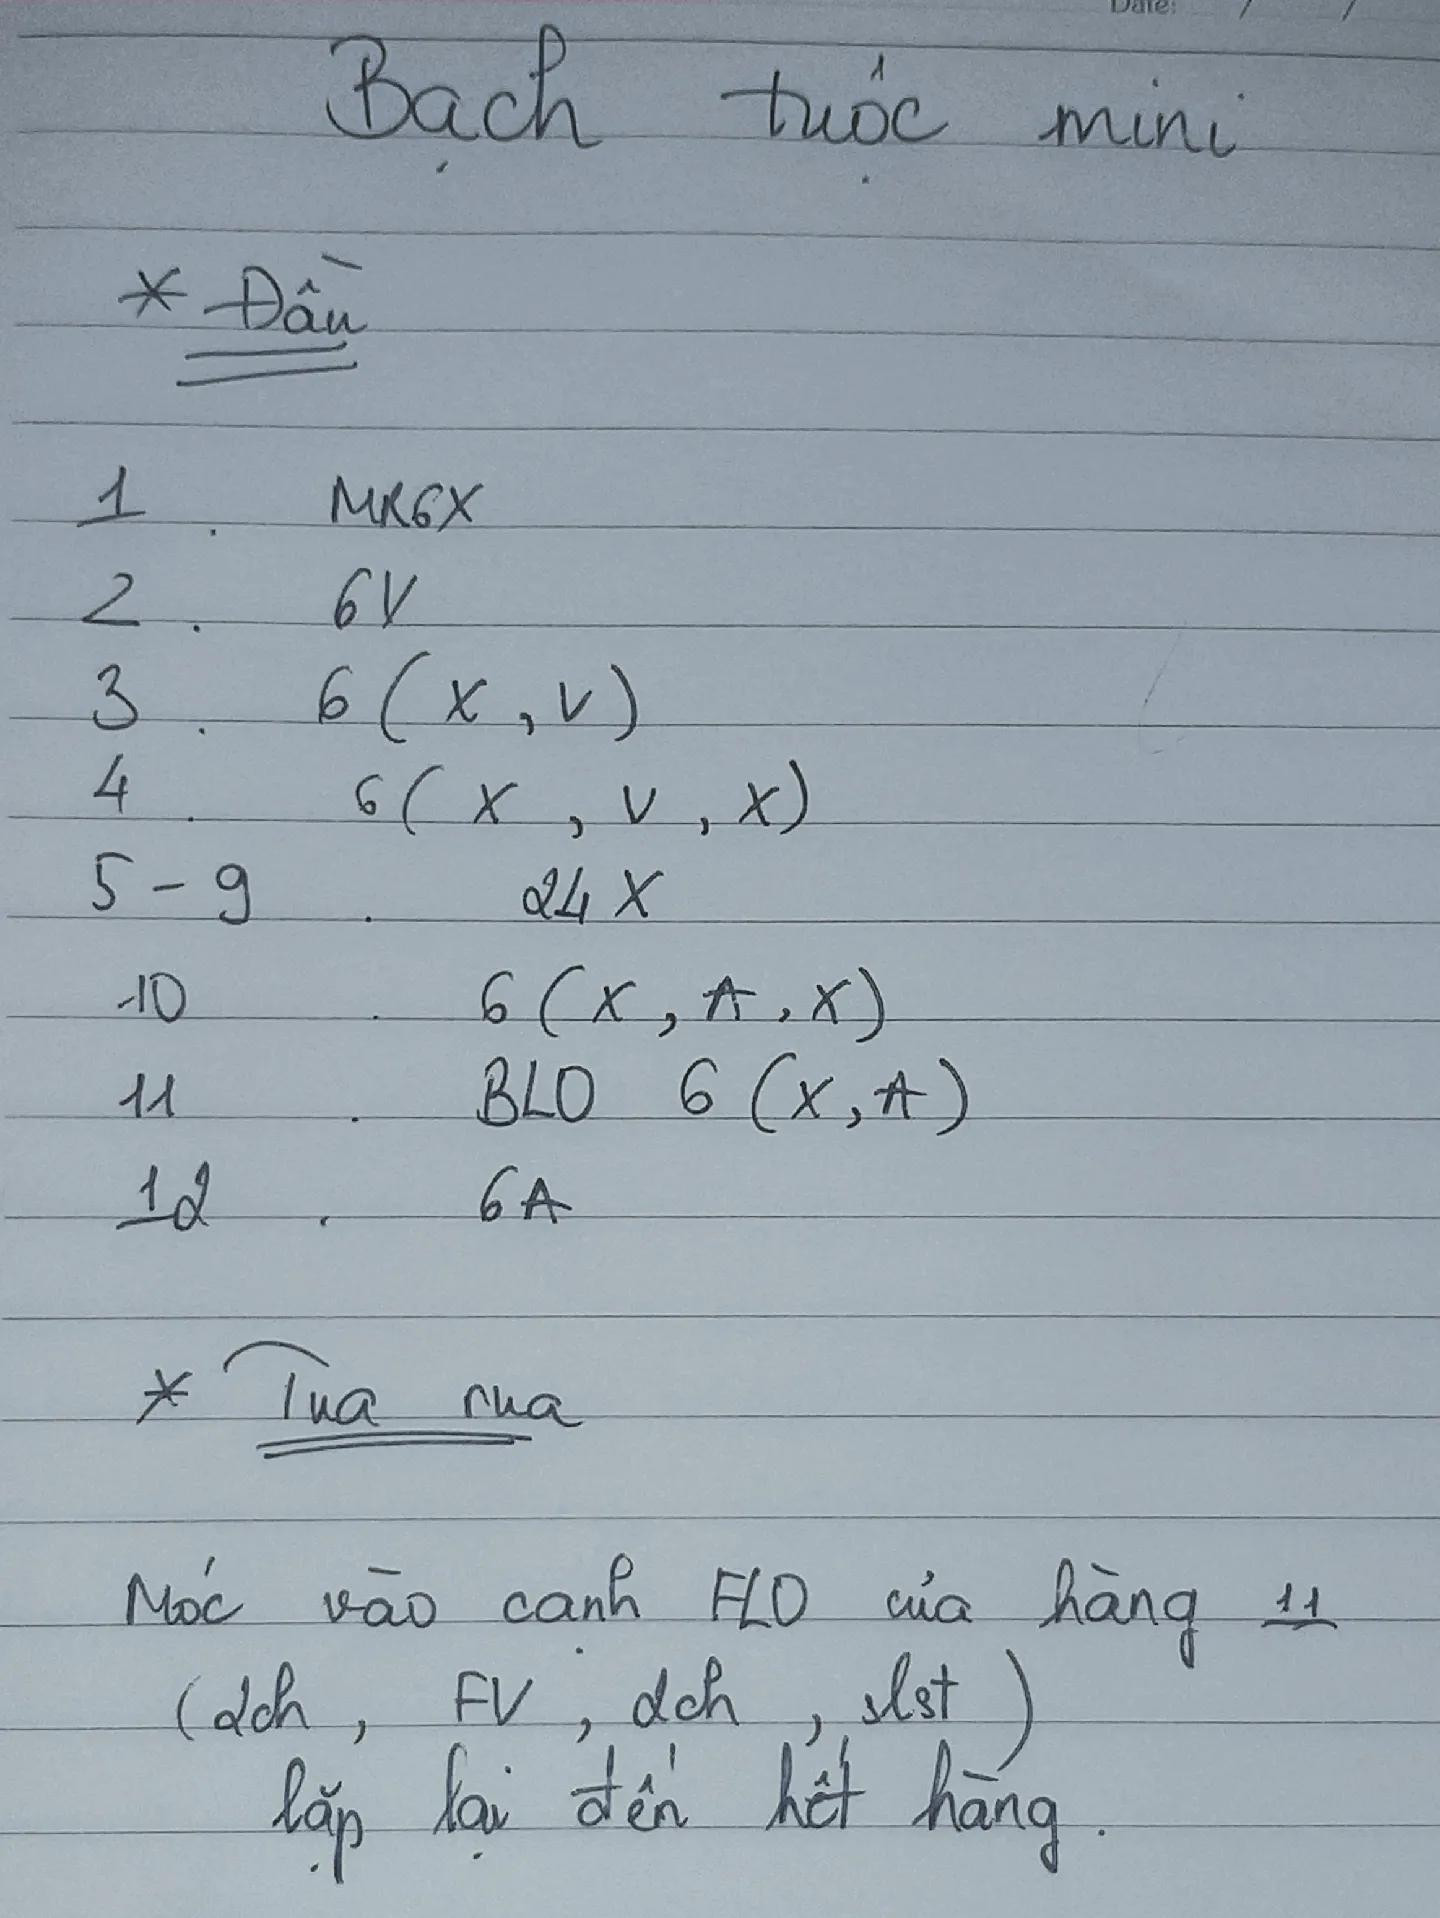 Date: / /
Bạch tuộc mini
* Đầu
1. MR6X
2. 6V
3. 6(X, V)
4. 6(X, V, X)
5-9. 24X
10. 6(X, A, X)
11. BLO 6(X, A)
12. 6A
* Tua rua
Móc vào cạnh FLO của hàng 11
(2ch, FV, 2ch, slst)
lặp lại đến hết hàng.